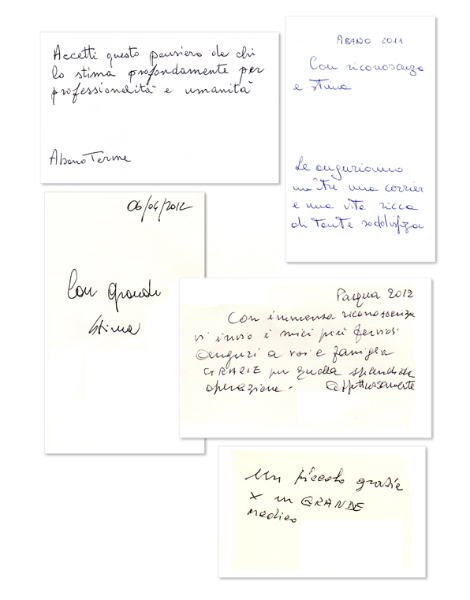 Accetti questo pensiero da chi
lo stima profondamente per
professionalità e umanità
Abano Terme
ABANO 2011
Con riconoscenza
e stima
Le auguriamo
una vita ricca
di tante soddisfaz
06/04/2012
Con grande
stima
Pasqua 2012
Con immensa riconoscenza
vi invio i miei più fervosi
auguri a voi e famiglia
GRAZIE per quella splendida
operazione. Affettuosamente
Un piccolo grazie
x un GRANDE
medico